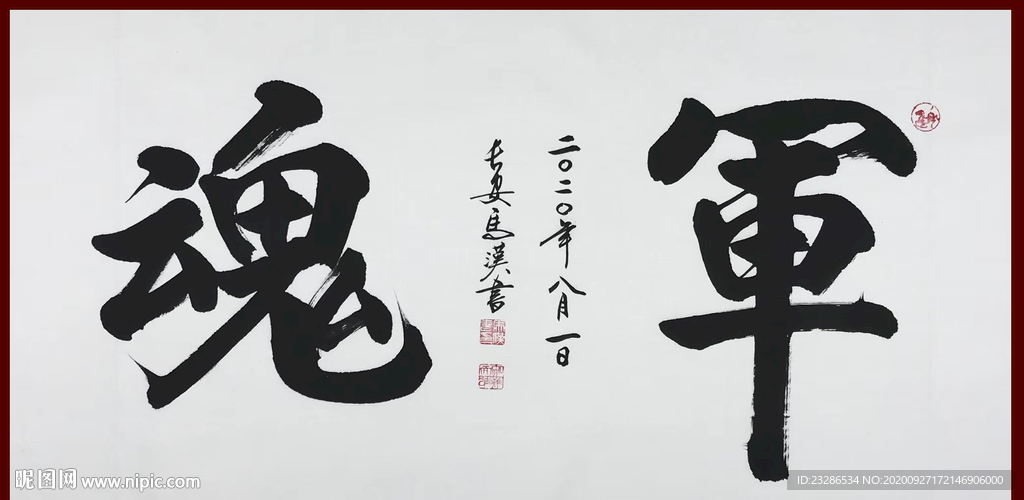 軍魂
二〇二〇年八月一日
長安馬漢書
昵图网 www.nipic.com
ID:23286534 NO:20200927172146906000